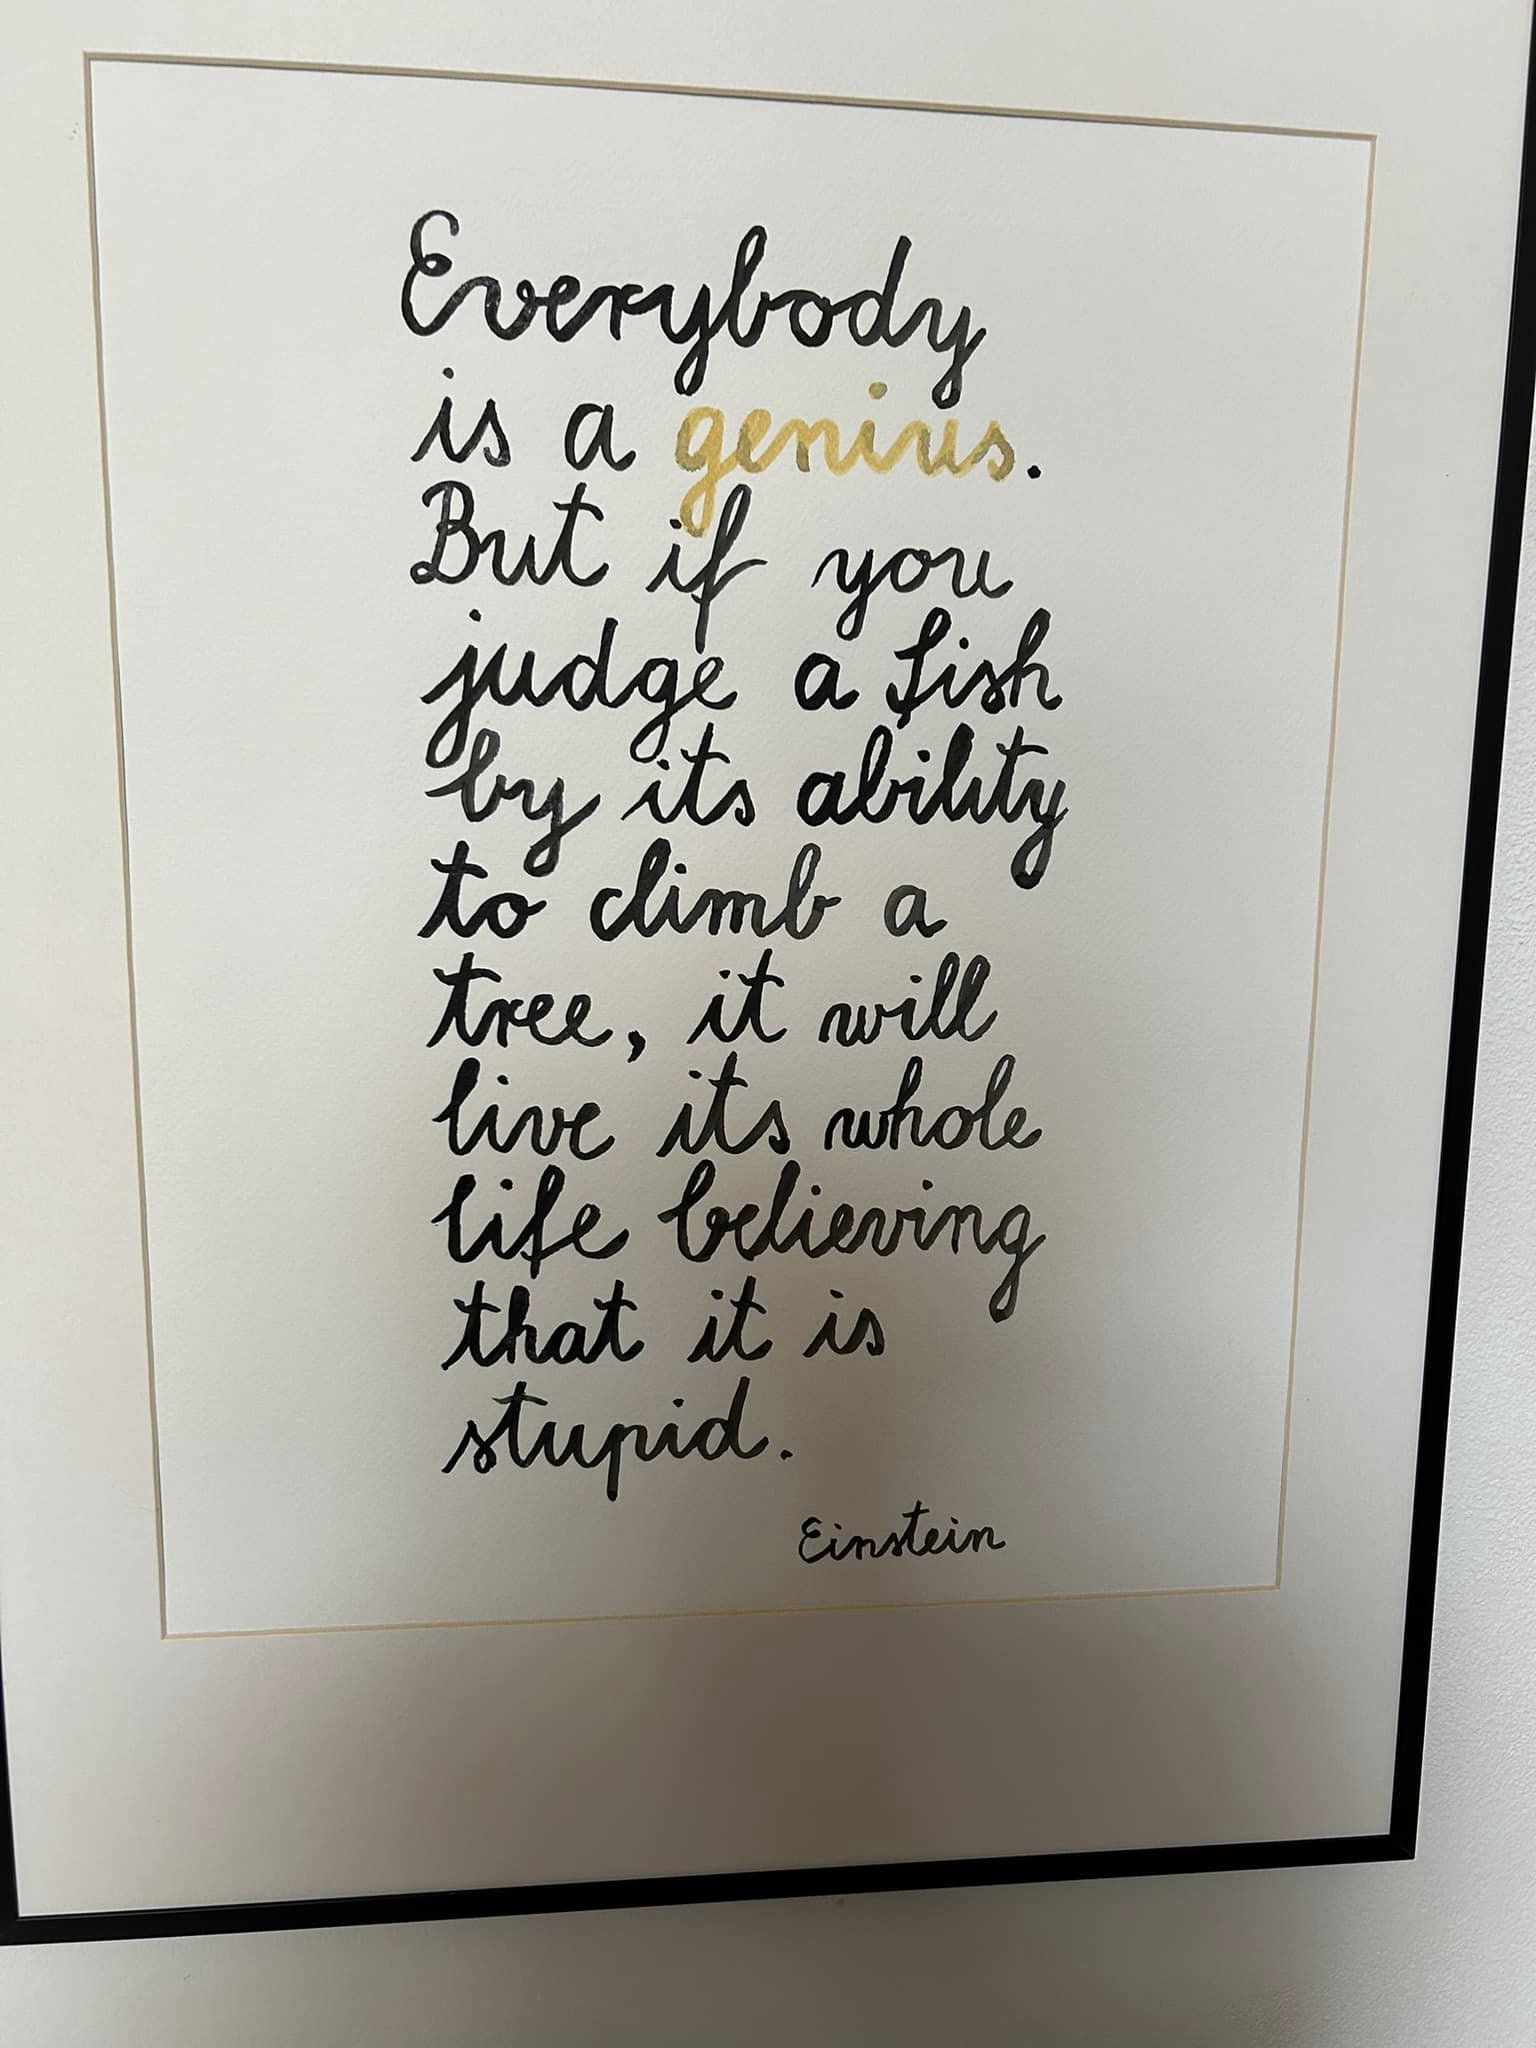 Everybody
is a genius.
But if you
judge a fish
by its ability
to climb a
tree, it will
live its whole
life believing
that it is
stupid.
Einstein